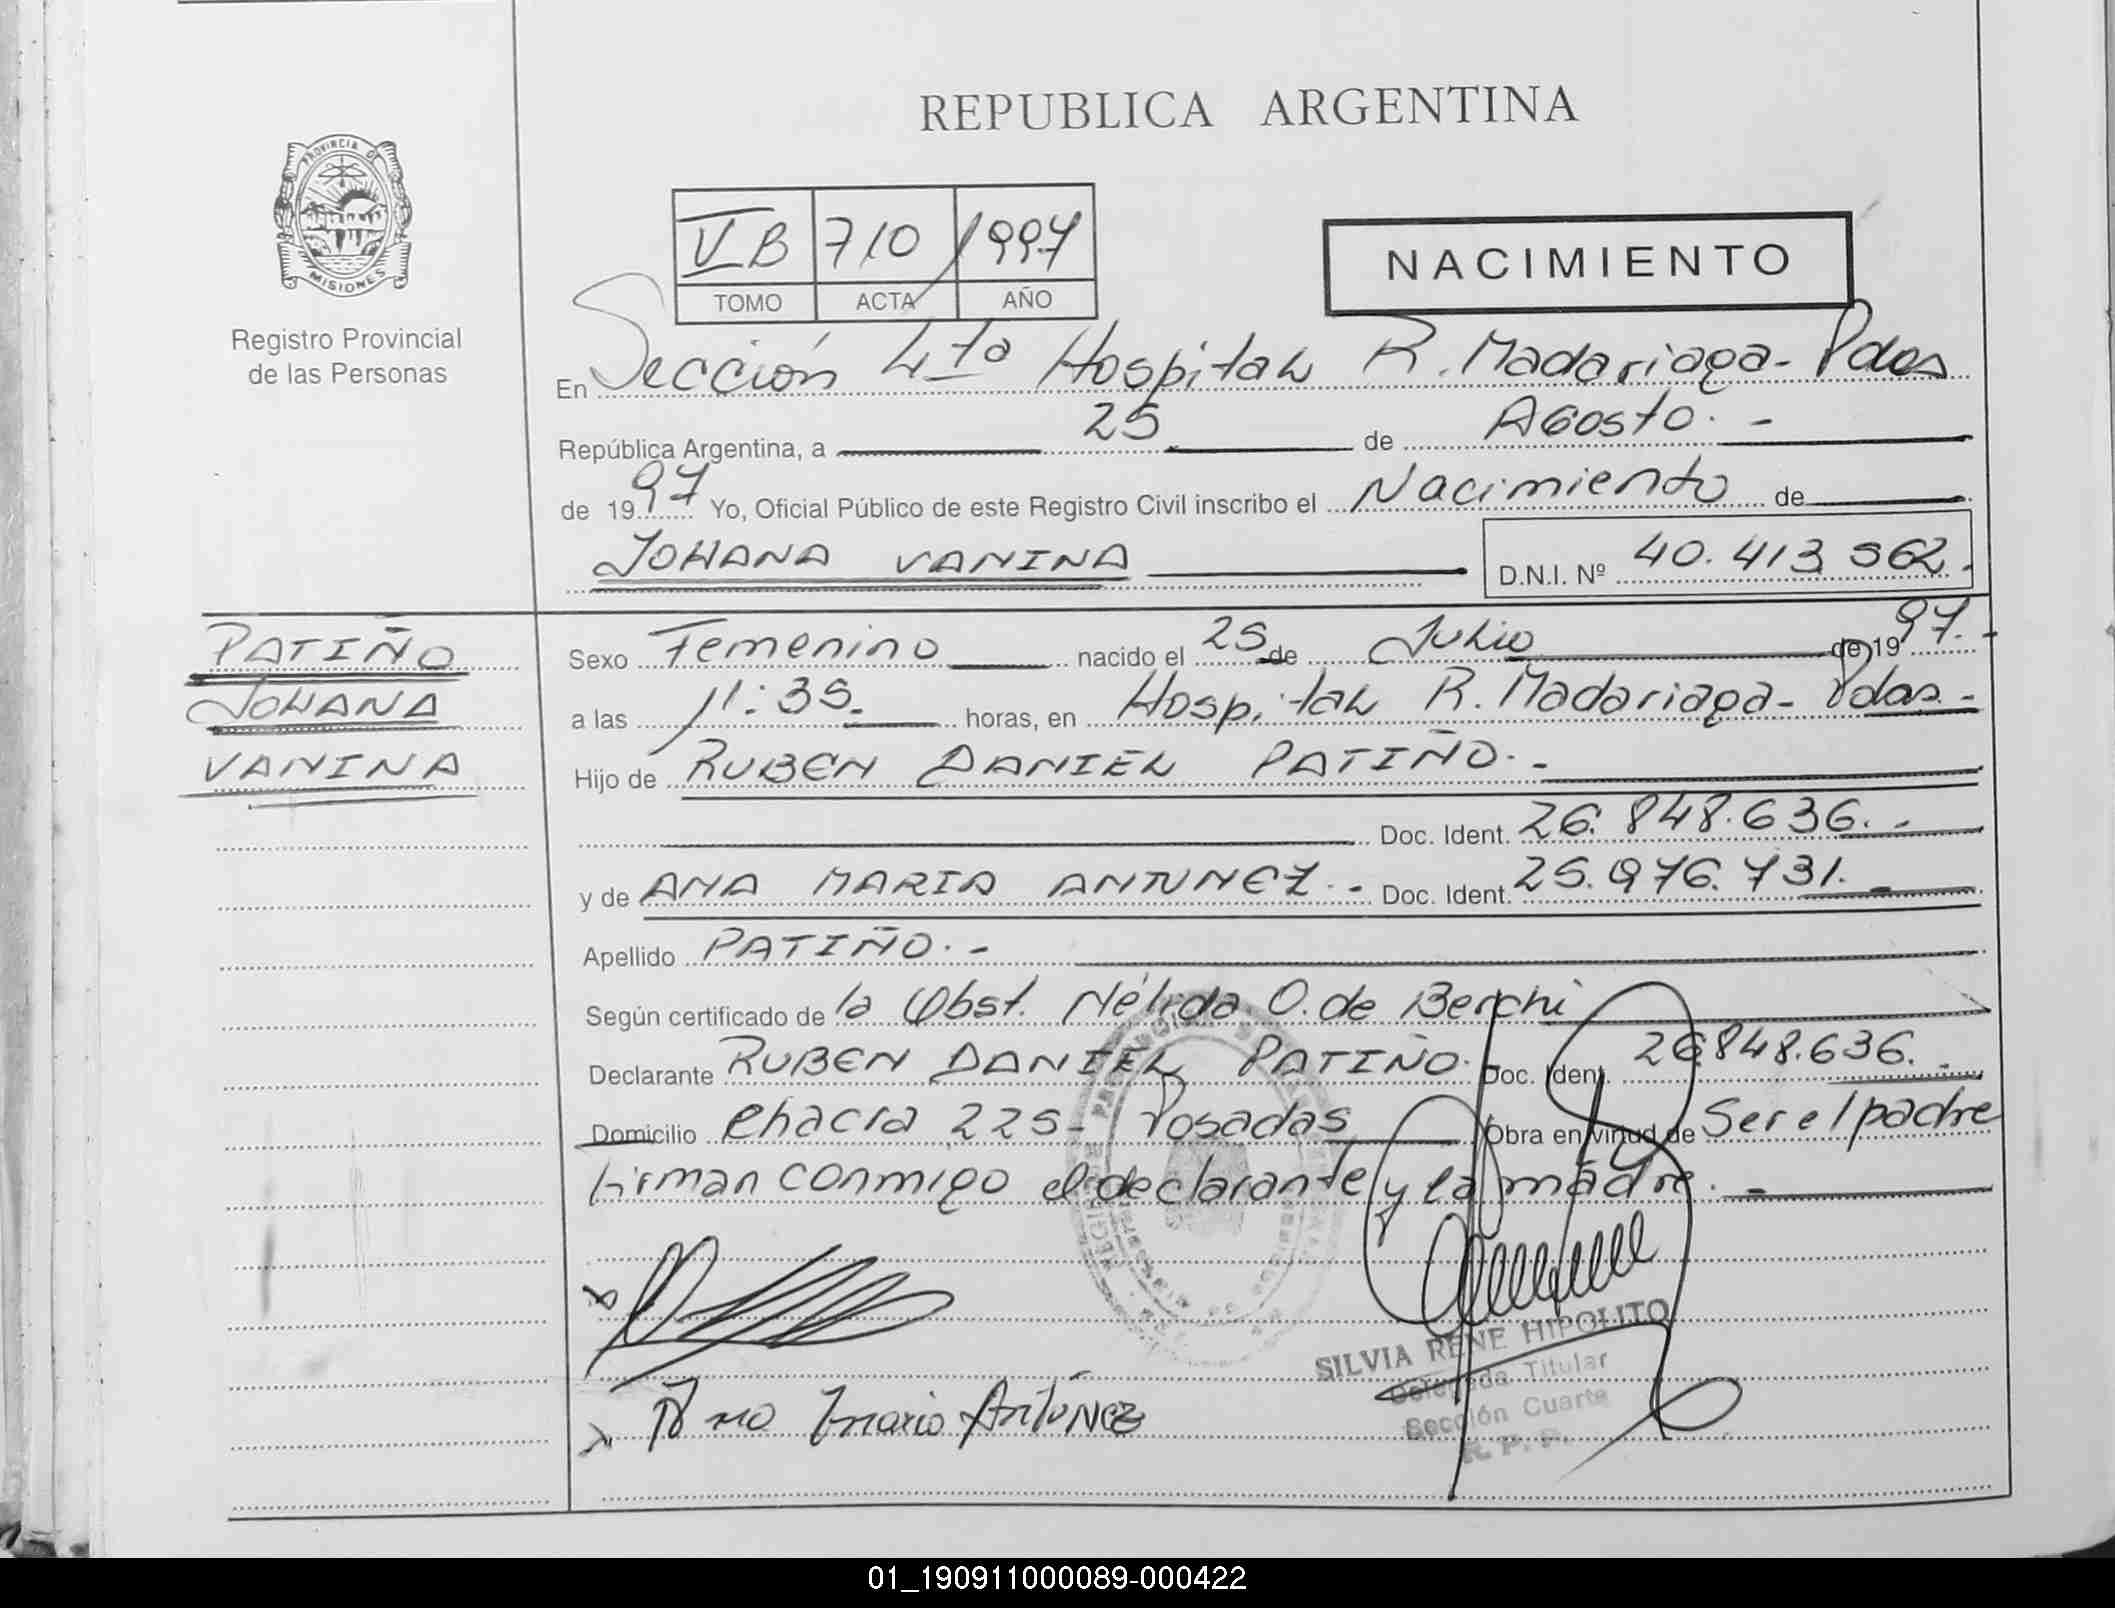 REPUBLICA ARGENTINA
PROVINCIA DE
MISIONES
Registro Provincial
de las Personas
V B 710 1997
TOMO ACTA AÑO
NACIMIENTO
En Sección 4ta Hospital R. Madariaga - Pdas
República Argentina, a 25 de Agosto. -
de 1997 Yo, Oficial Público de este Registro Civil inscribo el Nacimiento de
JOHANA VANINA D.N.I. Nº 40.413.562.
PATIÑO
JOHANA
VANINA
Sexo Femenino nacido el 25 de Julio de 1997. -
a las 11:35. horas, en Hospital R. Madariaga - Pdas. -
Hijo de RUBEN DANIEL PATIÑO. -
Doc. Ident. 26.848.636. -
y de ANA MARIA ANTUNEZ. - Doc. Ident. 25.976.731. -
Apellido PATIÑO. -
Según certificado de la Obst. Nélida O. de Berchi
Declarante RUBEN DANIEL PATIÑO. Doc. Ident. 26.848.636. -
Domicilio Chacra 225 - Posadas Obra en virtud de Ser el padre
firman conmigo el declarante y la madre. -
SILVIA RENE HIPOLITO
Delegada Titular
Sección Cuarta
R. P. P.
Ana Maria Antúnez
01_190911000089-000422